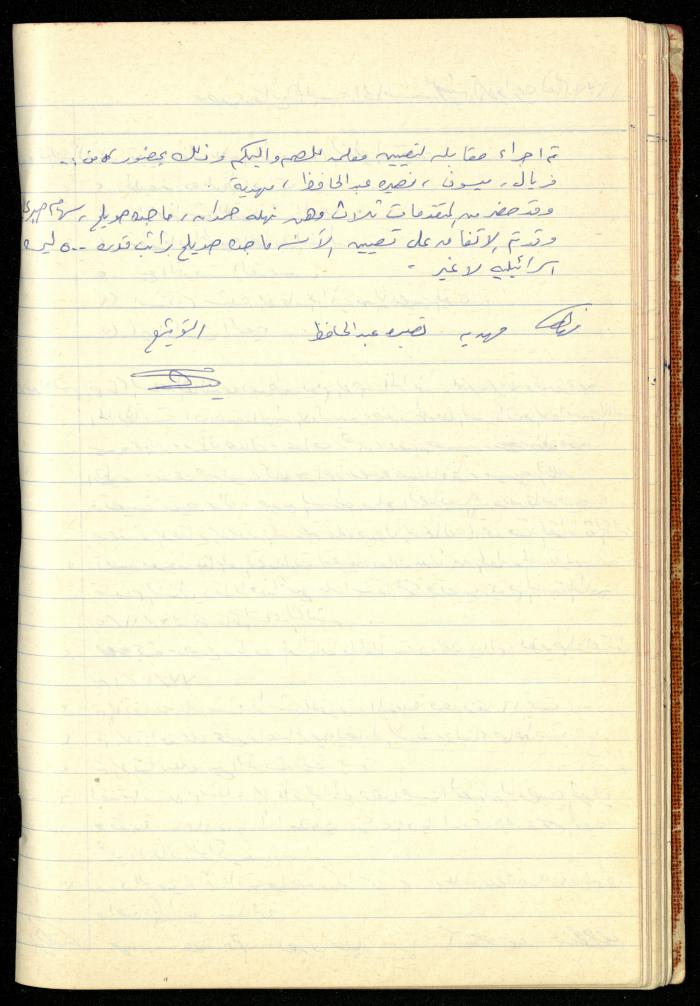 تم اجراء مقابله لتعيين معلمه للصم والبكم وذلك بحضور كل من :.
فريال، ميسون، نصيره عبدالحافظ، مهدية.
وقد حضر من المتقدمات ثلاث وهن نهله حمدان، ماجده صويلح، سهام
وقد تم الاتفاق على تعيين الآنسه ماجده صويلح براتب قدره ٥٠٠ ليره
اسرائيليه لا غير.
مهديه نصيره عبدالحافظ التوقيع